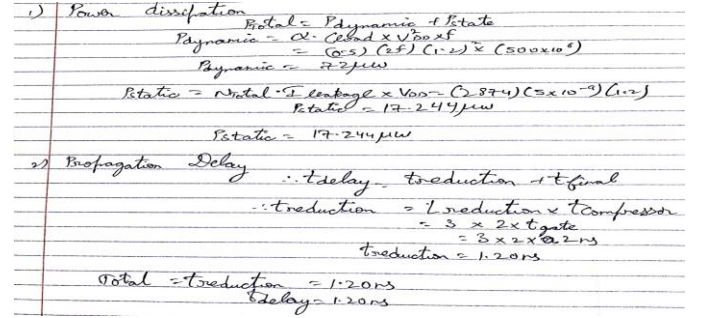 1) Power dissipation
Ptotal = Pdynamic + Pstate
Pdynamic = α. Cload x V²DD x f
= (0.5) (2f) (1.2)² x (500x10⁶)
Pdynamic = 72μw
Pstatic = Ntotal · I leakage x VDD = (2874) (5x10⁻⁹) (1.2)
Pstatic = 17.244μw
Pstatic = 17.244μw
2) Propagation Delay
∴ tdelay = treduction + tfinal
∴ treduction = Lreduction x tcompressor
= 3 x 2 x tgate
= 3 x 2 x 0.2ns
treduction = 1.20ns
Total = treduction = 1.20ns
tdelay = 1.20ns